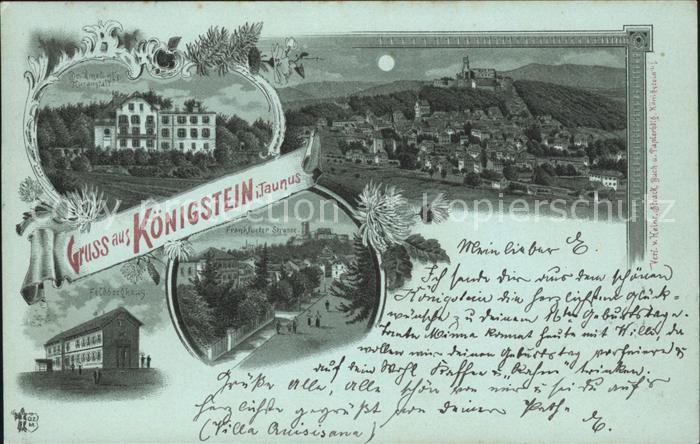 Dr. Amelung's
Kuranstalt
Gruss aus KÖNIGSTEIN i.Taunus
Frankfurter Strasse
Feldberghaus
Verl. v. Heinr. Strack, Buch u. Papierhdlg. Königstein i/
Mein lieber E
Ich sende dir aus dem schönen
Königstein die herzlichsten Glück-
wünsche zu deinem Geburtstage.
Tante Minna kommt heute mit Willi, da
wollen wir deinen Geburtstag vorfeiern &
auf dein Wohl Kaffee u. Kuchen trinken.
Grüße alle, alle schön von mir u sei du aufs
herzlichste gegrüßt von deiner Pathe
(Villa Quisisana) E.